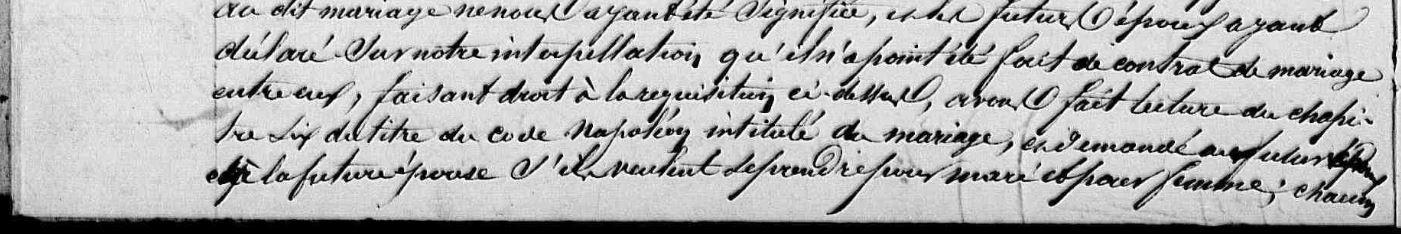 au dit mariage ne nous ayant été signifiée, et les futurs époux ayant
déclaré sur notre interpellation qu'il n'a point été fait de contrat de mariage
entre eux, faisant droit à la requisition ci-dessus, avons fait lecture du chapi-
tre six du titre du code Napoléon intitulé du mariage, et demandé au futur époux
et à la future épouse s'ils veulent se prendre pour mari et pour femme; chacun